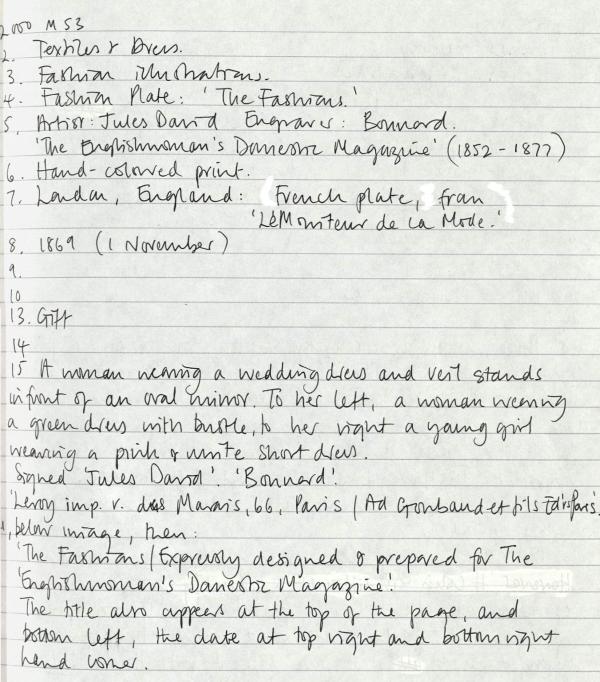 2000 M 53
2. Textiles & Dress.
3. Fashion illustrations.
4. Fashion Plate: 'The Fashions.'
5. Artist: Jules David Engraver: Bonnard.
'The Englishwoman's Domestic Magazine' (1852 - 1877)
6. Hand-coloured print.
7. London, England: (French plate, from
'Le Moniteur de La Mode.')
8. 1869 (1 November)
9.
10
13. Gift
14
15 A woman wearing a wedding dress and veil stands
infront of an oval mirror. To her left, a woman wearing
a green dress with bustle, to her right a young girl
wearing a pink & white short dress.
Signed 'Jules David'. 'Bonnard'.
'Leroy imp. r. des Marais, 66, Paris / Ad Goubaud et fils Ed'rs Paris'.
, below image, then:
'The Fashions / Expressly designed & prepared for The
'Englishwoman's Domestic Magazine'.
The title also appears at the top of the page, and
bottom left, the date at top right and bottom right
hand corner.